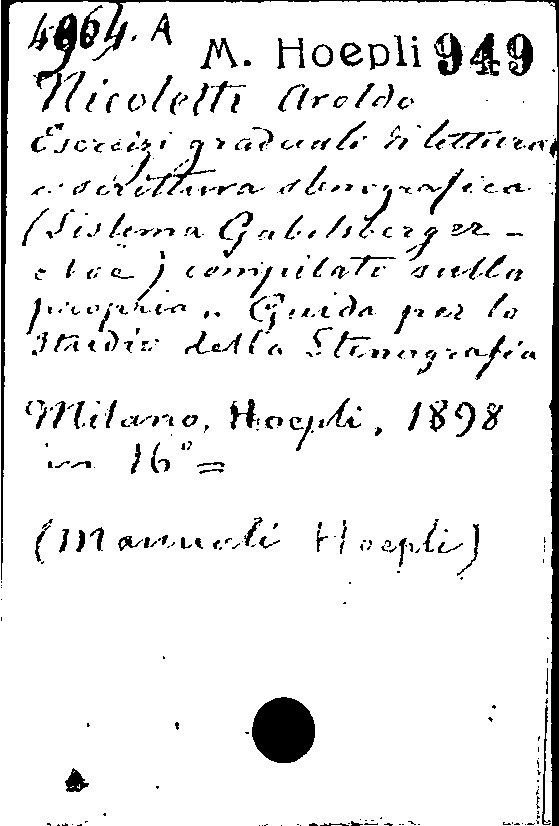 4964. A M. Hoepli 949
Nicoletti Aroldo
Esercizi graduali di lettura
e scrittura stenografica
(Sistema Gabelsberger-
Noë) compilati sulla
propria „ Guida per lo
Studio della Stenografia
Milano, Hoepli, 1898
in 16° =
(Manuali Hoepli)